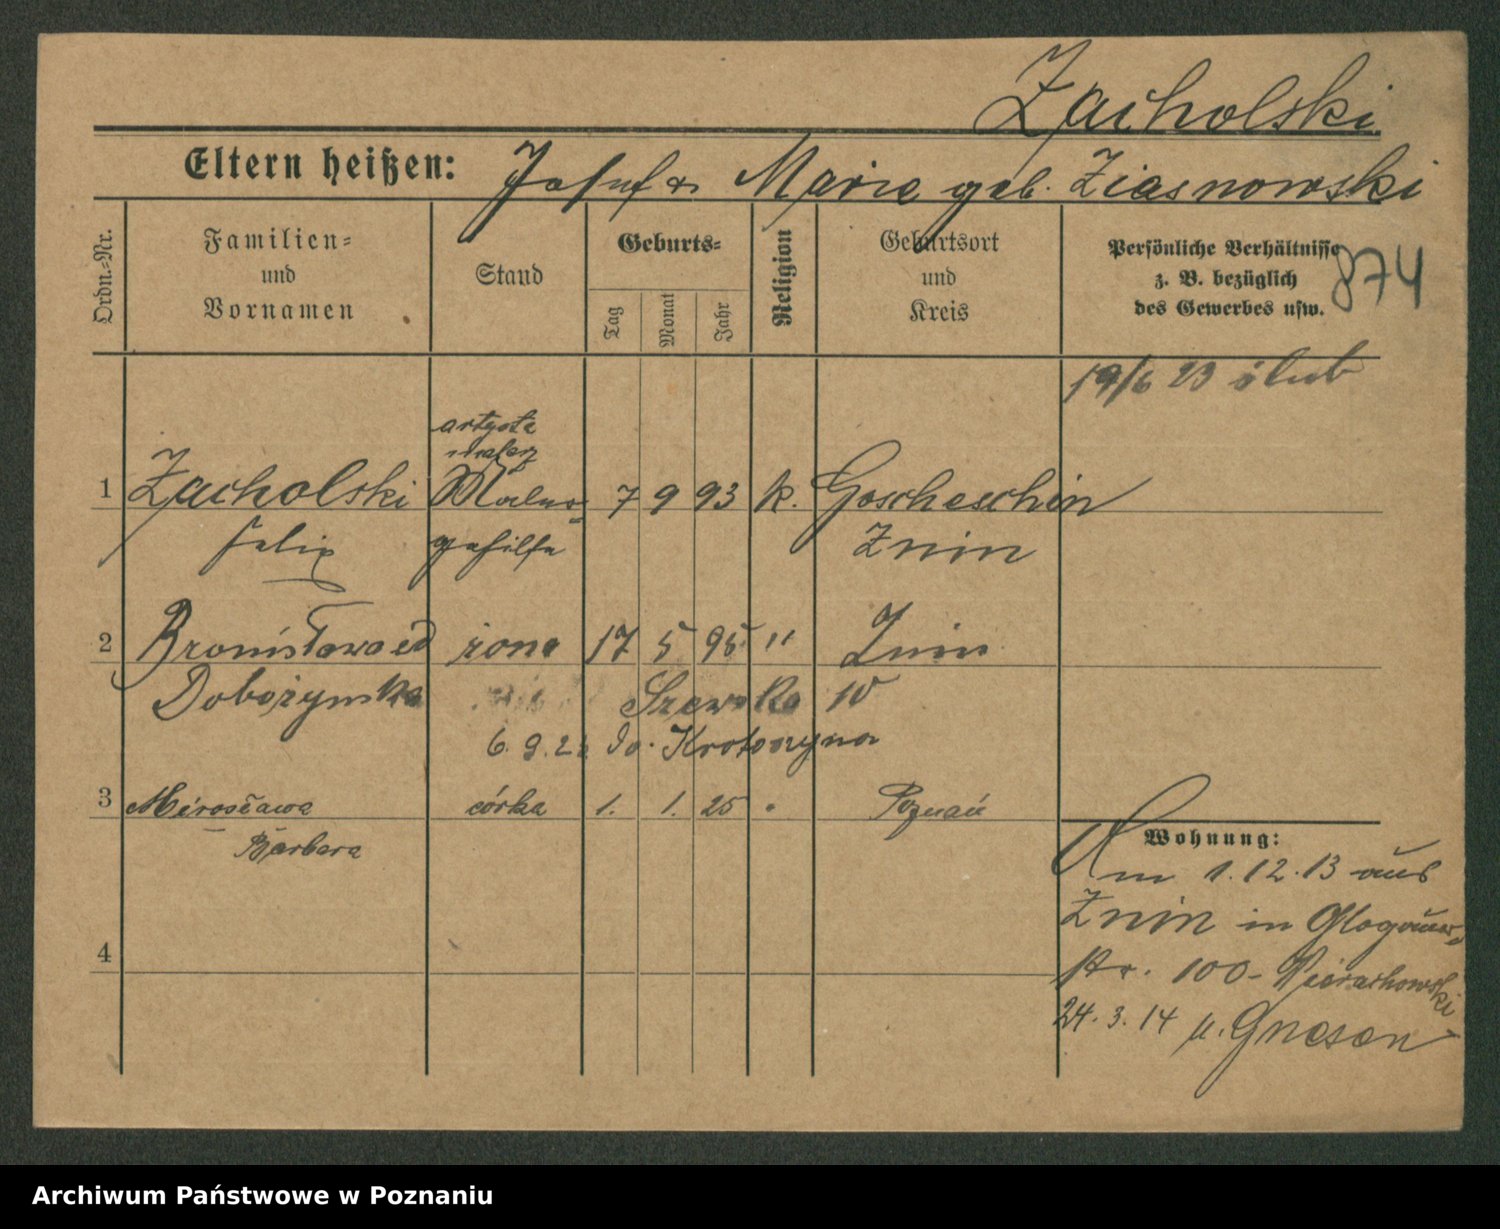 Zacholski
Eltern heißen: Josef & Marie geb. Ziasnowski
Ordn.-Nr.
Familien- und Vornamen
Stand
Geburts-
Tag Monat Jahr
Religion
Geburtsort und Kreis
Persönliche Verhältnisse
z. B. bezüglich
des Gewerbes usw.
874
19/6 23 ślub
artysta
malarz
1 Zacholski Maler- 7 9 93 k. Goscheschin
Felix gehilfe Znin
2 Bronisława żona 17 5 95 " Znin
Dobożynska Szewska 10
6.9.2 do Krotoszyna
3 Mirosława córka 1. 1. 25 " Poznań
Barbara
4
Wohnung:
Am 1.12.13 aus
Znin in Glogauer-
str. 100
24.3.14 n. Gnesen
Archiwum Państwowe w Poznaniu